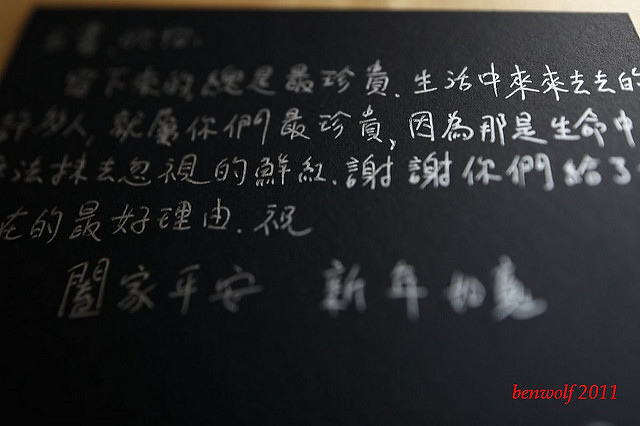 留下來的,總是最珍貴.生活中來來去去的
許多人,就屬你們最珍貴,因為那是生命中
法抹去忽視的鮮紅.謝謝你們給了
在的最好理由.祝
闔家平安 新年如意
benwolf 2011